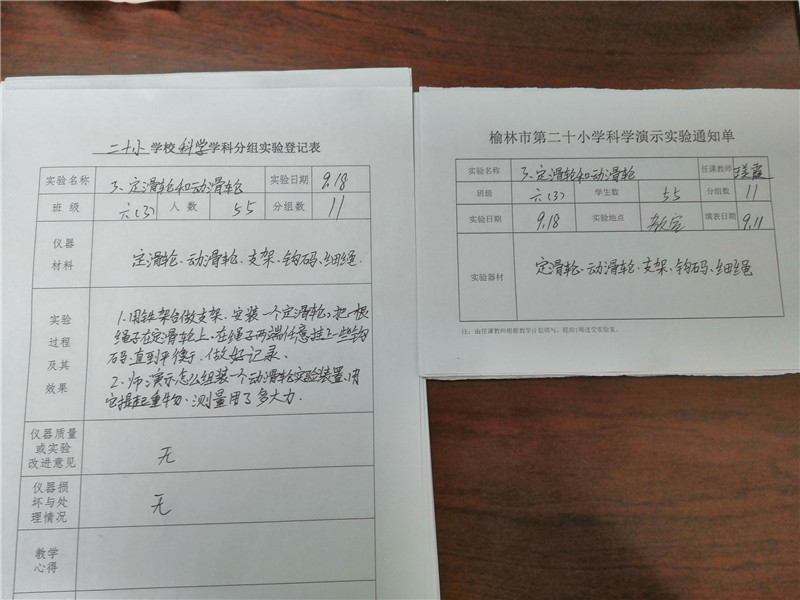 二十小学校科学学科分组实验登记表
实验名称 3、定滑轮和动滑轮 实验日期 9.18
班级 六(3) 人数 55 分组数 11
仪器材料 定滑轮、动滑轮、支架、钩码、细绳.
实验过程及其效果
1.用铁架台做支架、安装一个定滑轮,把一根
绳子在定滑轮上、在绳子两端任意挂上一些钩
码、直到平衡、做好记录、
2、师演示怎么组装一个动滑轮实验装置、用
它提起重物、测量用了多大力.
仪器质量或实验改进意见 无
仪器损坏与处理情况 无
教学心得
榆林市第二十小学科学演示实验通知单
实验名称 3、定滑轮和动滑轮 任课教师
班级 六(3) 学生数 55 分组数 11
实验日期 9.18 实验地点 教室 填表日期 9.11
实验器材 定滑轮、动滑轮、支架、钩码、细绳
注:由任课教师根据教学计划填写,提前1周送交实验室。